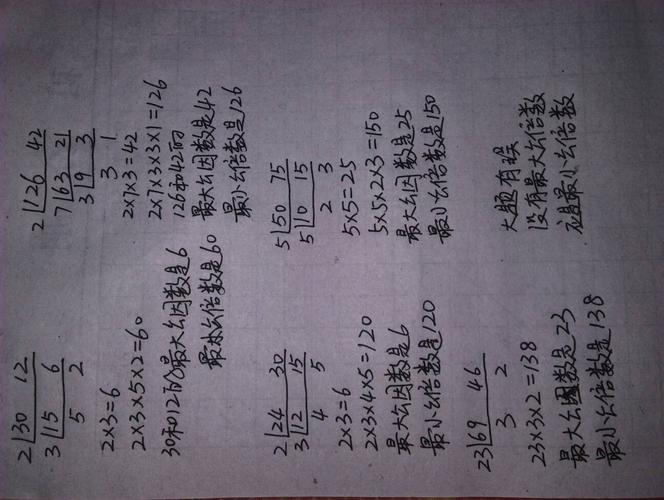 2|30 12
3|15 6
5 2
2×3=6
2×3×5×2=60
30和12的最大公因数是6
最小公倍数是60
2|126 42
7|63 21
3|9 3
3 1
2×7×3=42
2×7×3×3×1=126
126和42的
最大公因数是42
最小公倍数是126
2|24 30
3|12 15
4 5
2×3=6
2×3×4×5=120
最大公因数是6
最小公倍数是120
5|50 75
5|10 15
2 3
5×5=25
5×5×2×3=150
最大公因数是25
最小公倍数是150
23|69 46
3 2
23×3×2=138
最大公因数是23
最小公倍数是138
大题有误
没有最大公倍数
是最小公倍数